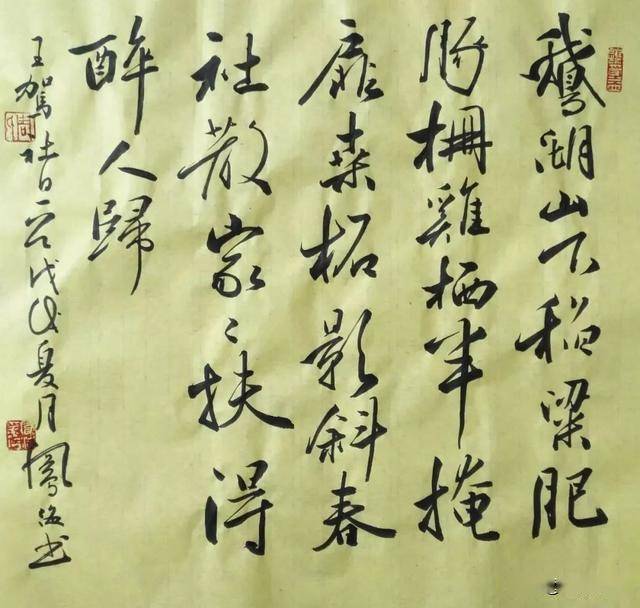 鵝湖山下稻粱肥
豚柵雞栖半掩
扉桑柘影斜春
社散家〻扶得
醉人歸
王駕社日一首戊戌夏月鳳俊书